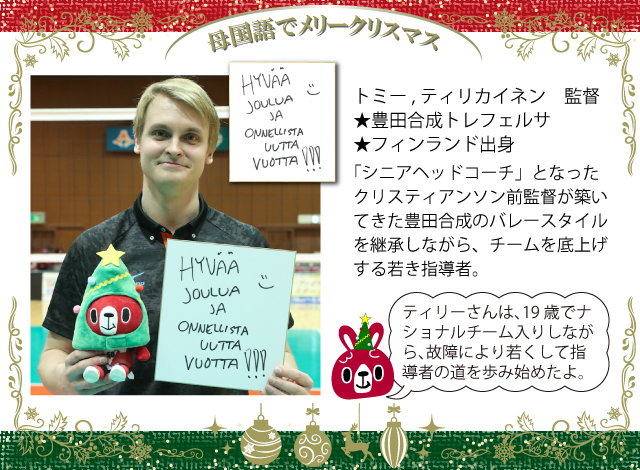 母国語でメリークリスマス
HYVÄÄ
JOULUA
JA
ONNELLISTA
UUTTA
VUOTTA!!!
トミー,ティリカイネン　監督
★豊田合成トレフェルサ
★フィンランド出身
「シニアヘッドコーチ」となった
クリスティアンソン前監督が築い
てきた豊田合成のバレースタイル
を継承しながら、チームを底上げ
する若き指導者。
HYVÄÄ
JOULUA
JA
ONNELLISTA
UUTTA
VUOTTA!!!
ティリーさんは、19歳でナ
ショナルチーム入りしなが
ら、故障により若くして指
導者の道を歩み始めたよ。